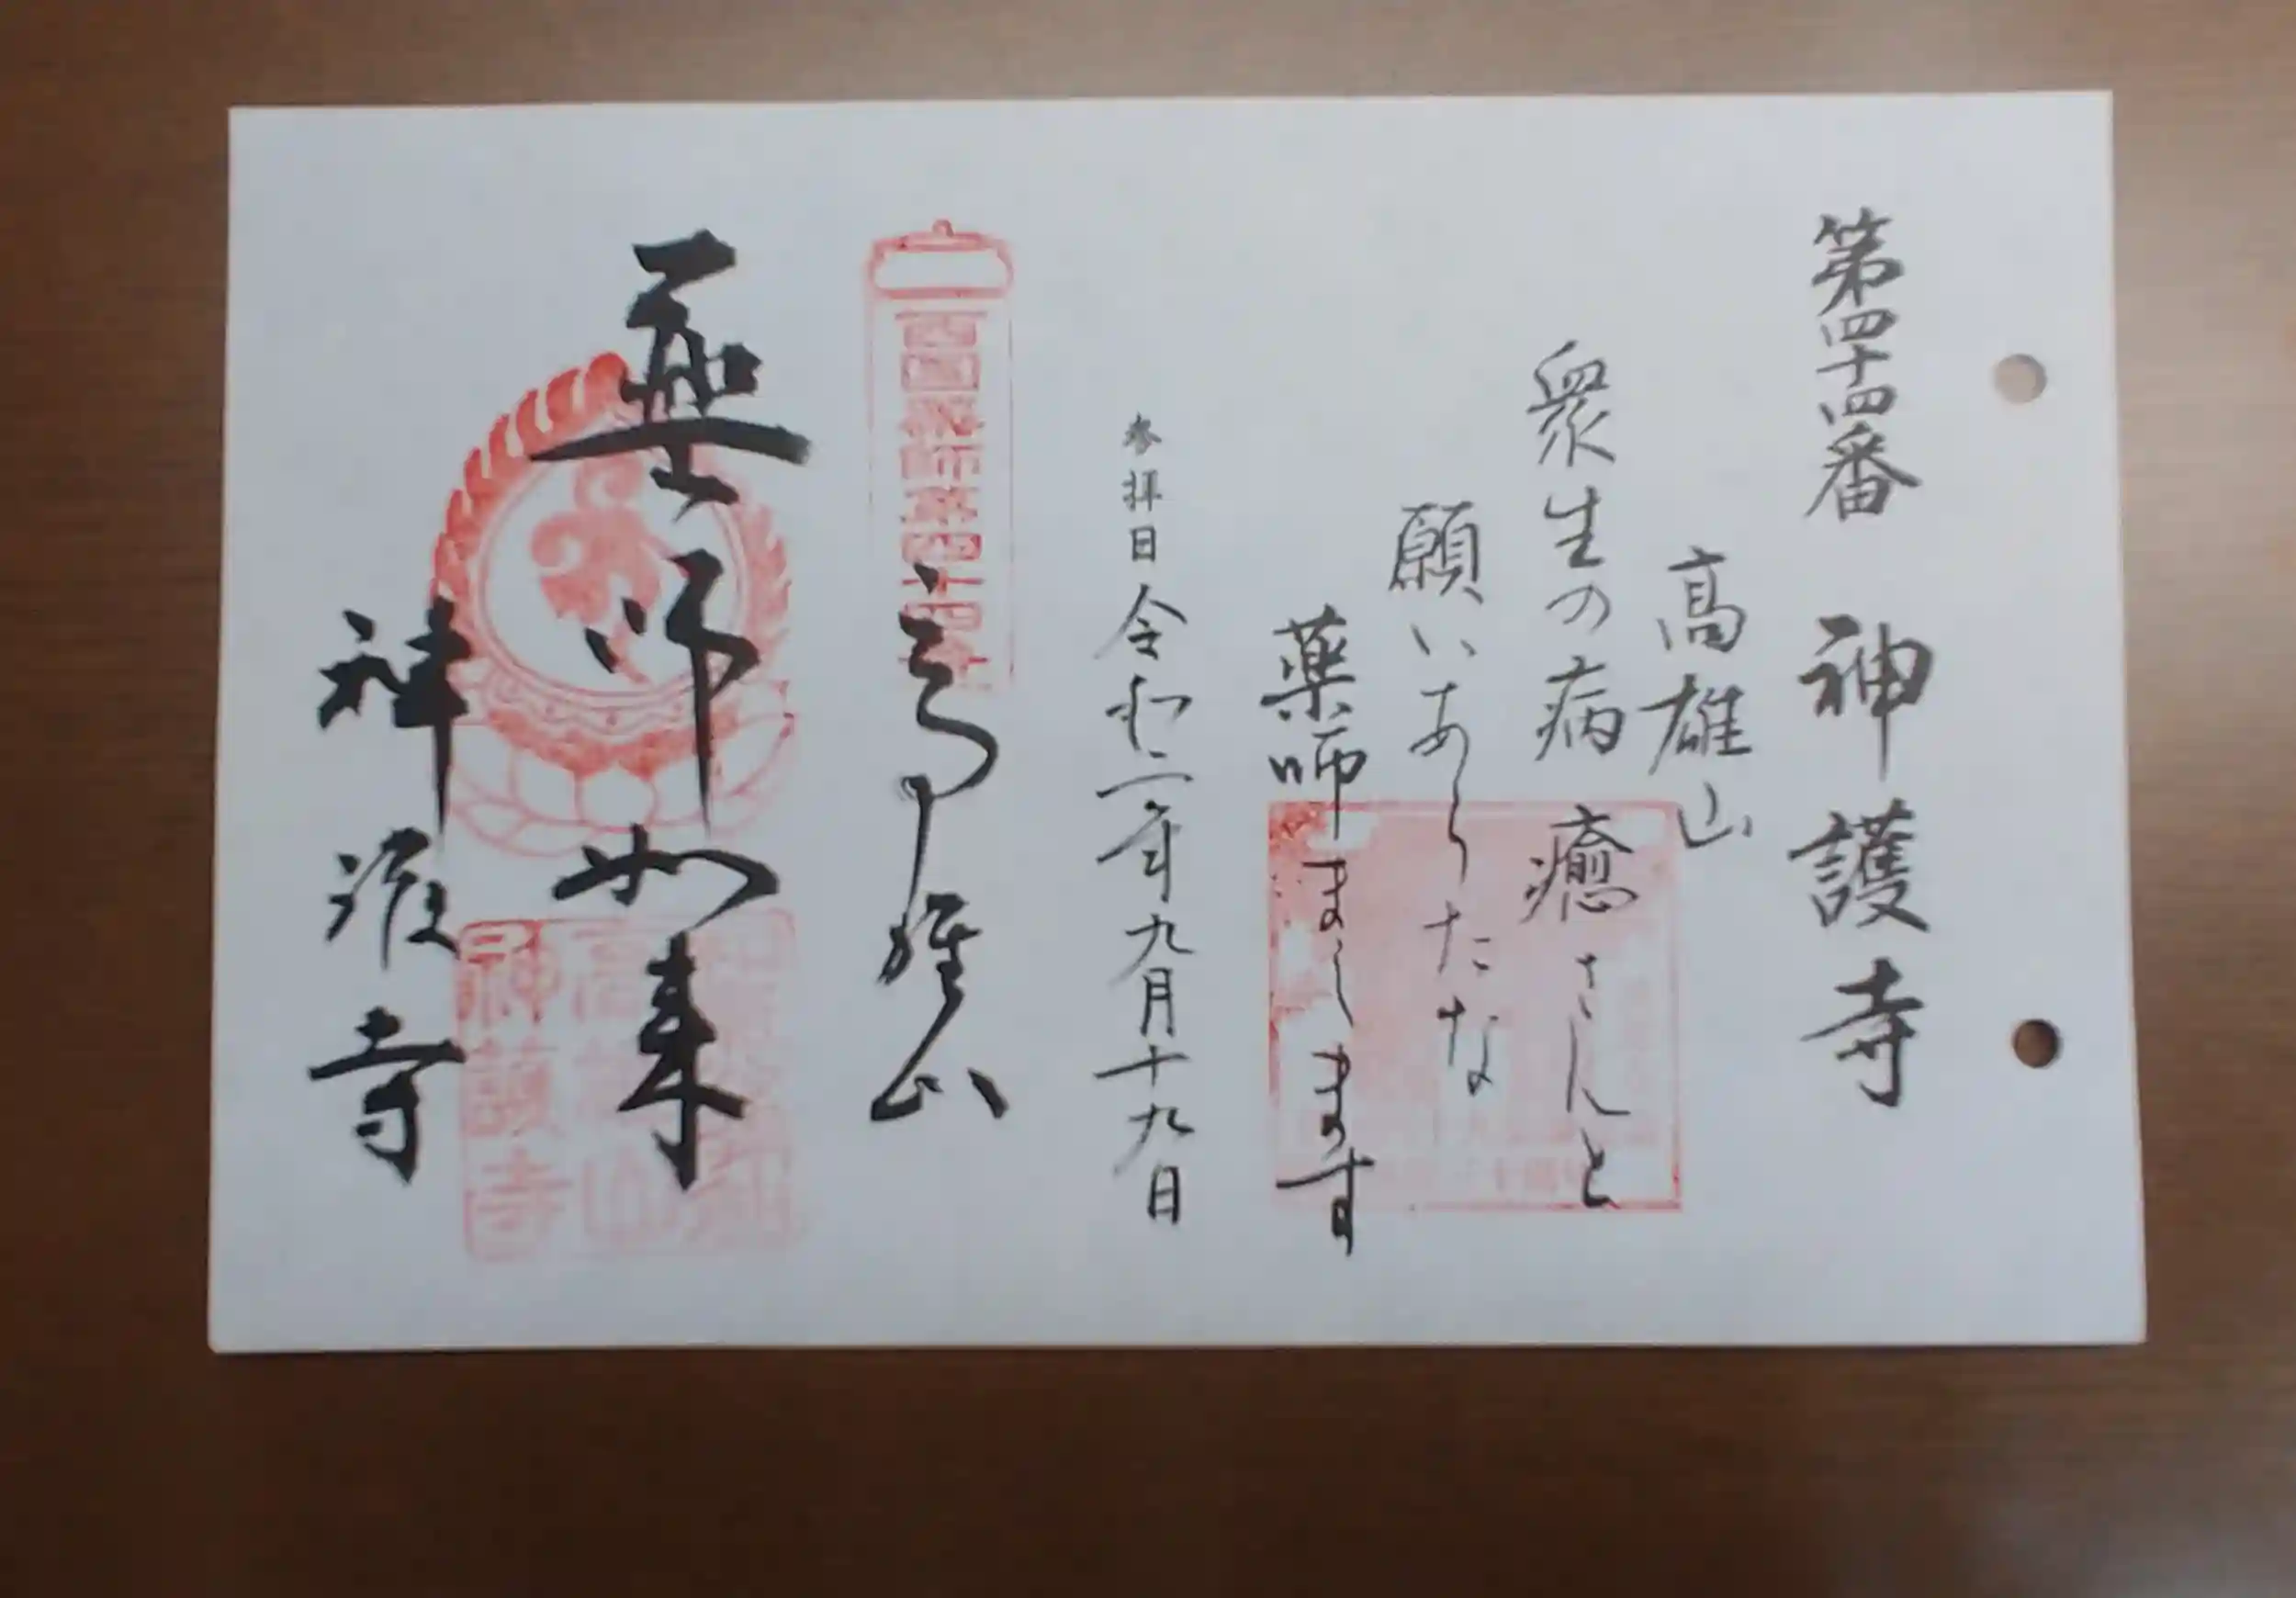 第四十四番 神護寺
高雄山
衆生の病 癒さんと
願いあらたな
薬師まします
参拝日 令和二年九月十九日
西国薬師第四十四番
高雄山
薬師如来
神護寺
高雄山
神護寺